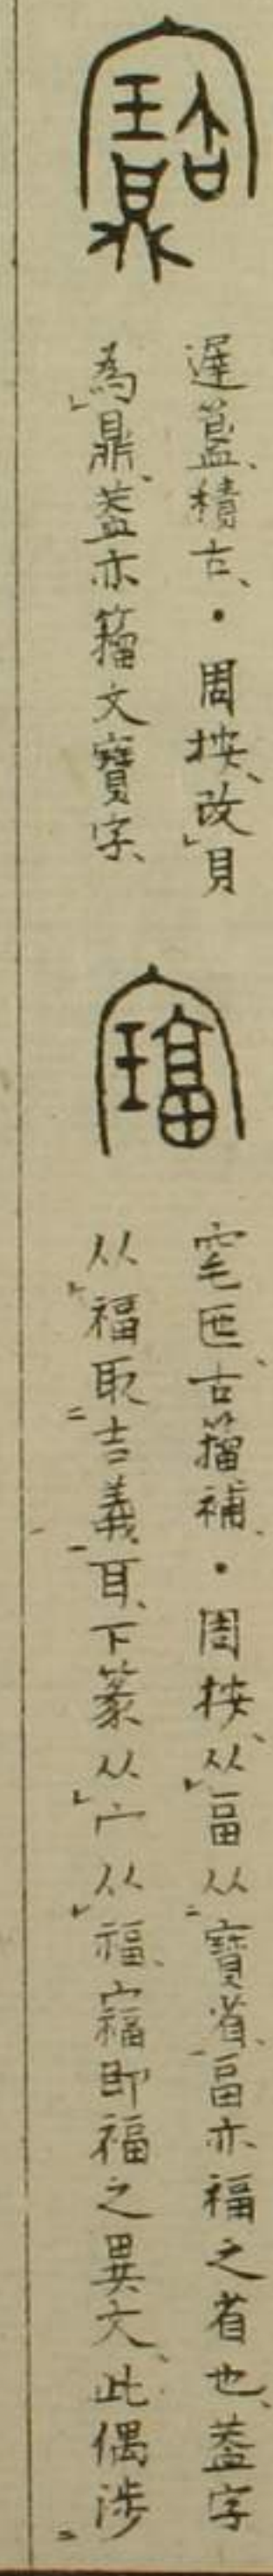 遟簋、積古、・周按、改貝
為鼎、蓋亦籀文寶字、
寏匜、古籀補、・周按、从畐从寶省、畐亦福之省也、蓋字
从福取吉義耳、下篆从宀从福、寚即福之異文、此偶涉